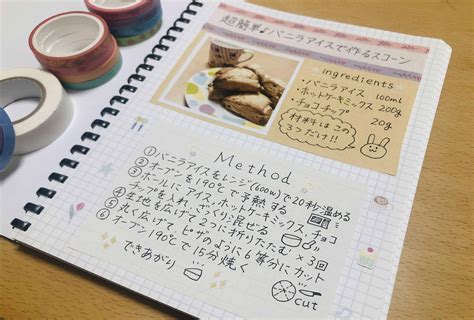 超簡単♪バニラアイスで作るスコーン
ingredients
・バニラアイス 100ml
・ホットケーキミックス 200g
・チョコチップ 20g
材料はこの
3つだけ!!
Method
①バニラアイスをレンジ(600w)で20秒温める
②オーブンを190℃で予熱する
③ボールにアイス、ホットケーキミックス、チョコ
チップを入れ、ざっくり混ぜる
④生地を広げて2つに折りたたむ ×3回
⑤丸く広げて、ピザのように6等分にカット
⑥オーブン190℃で15分焼く
できあがり
cut